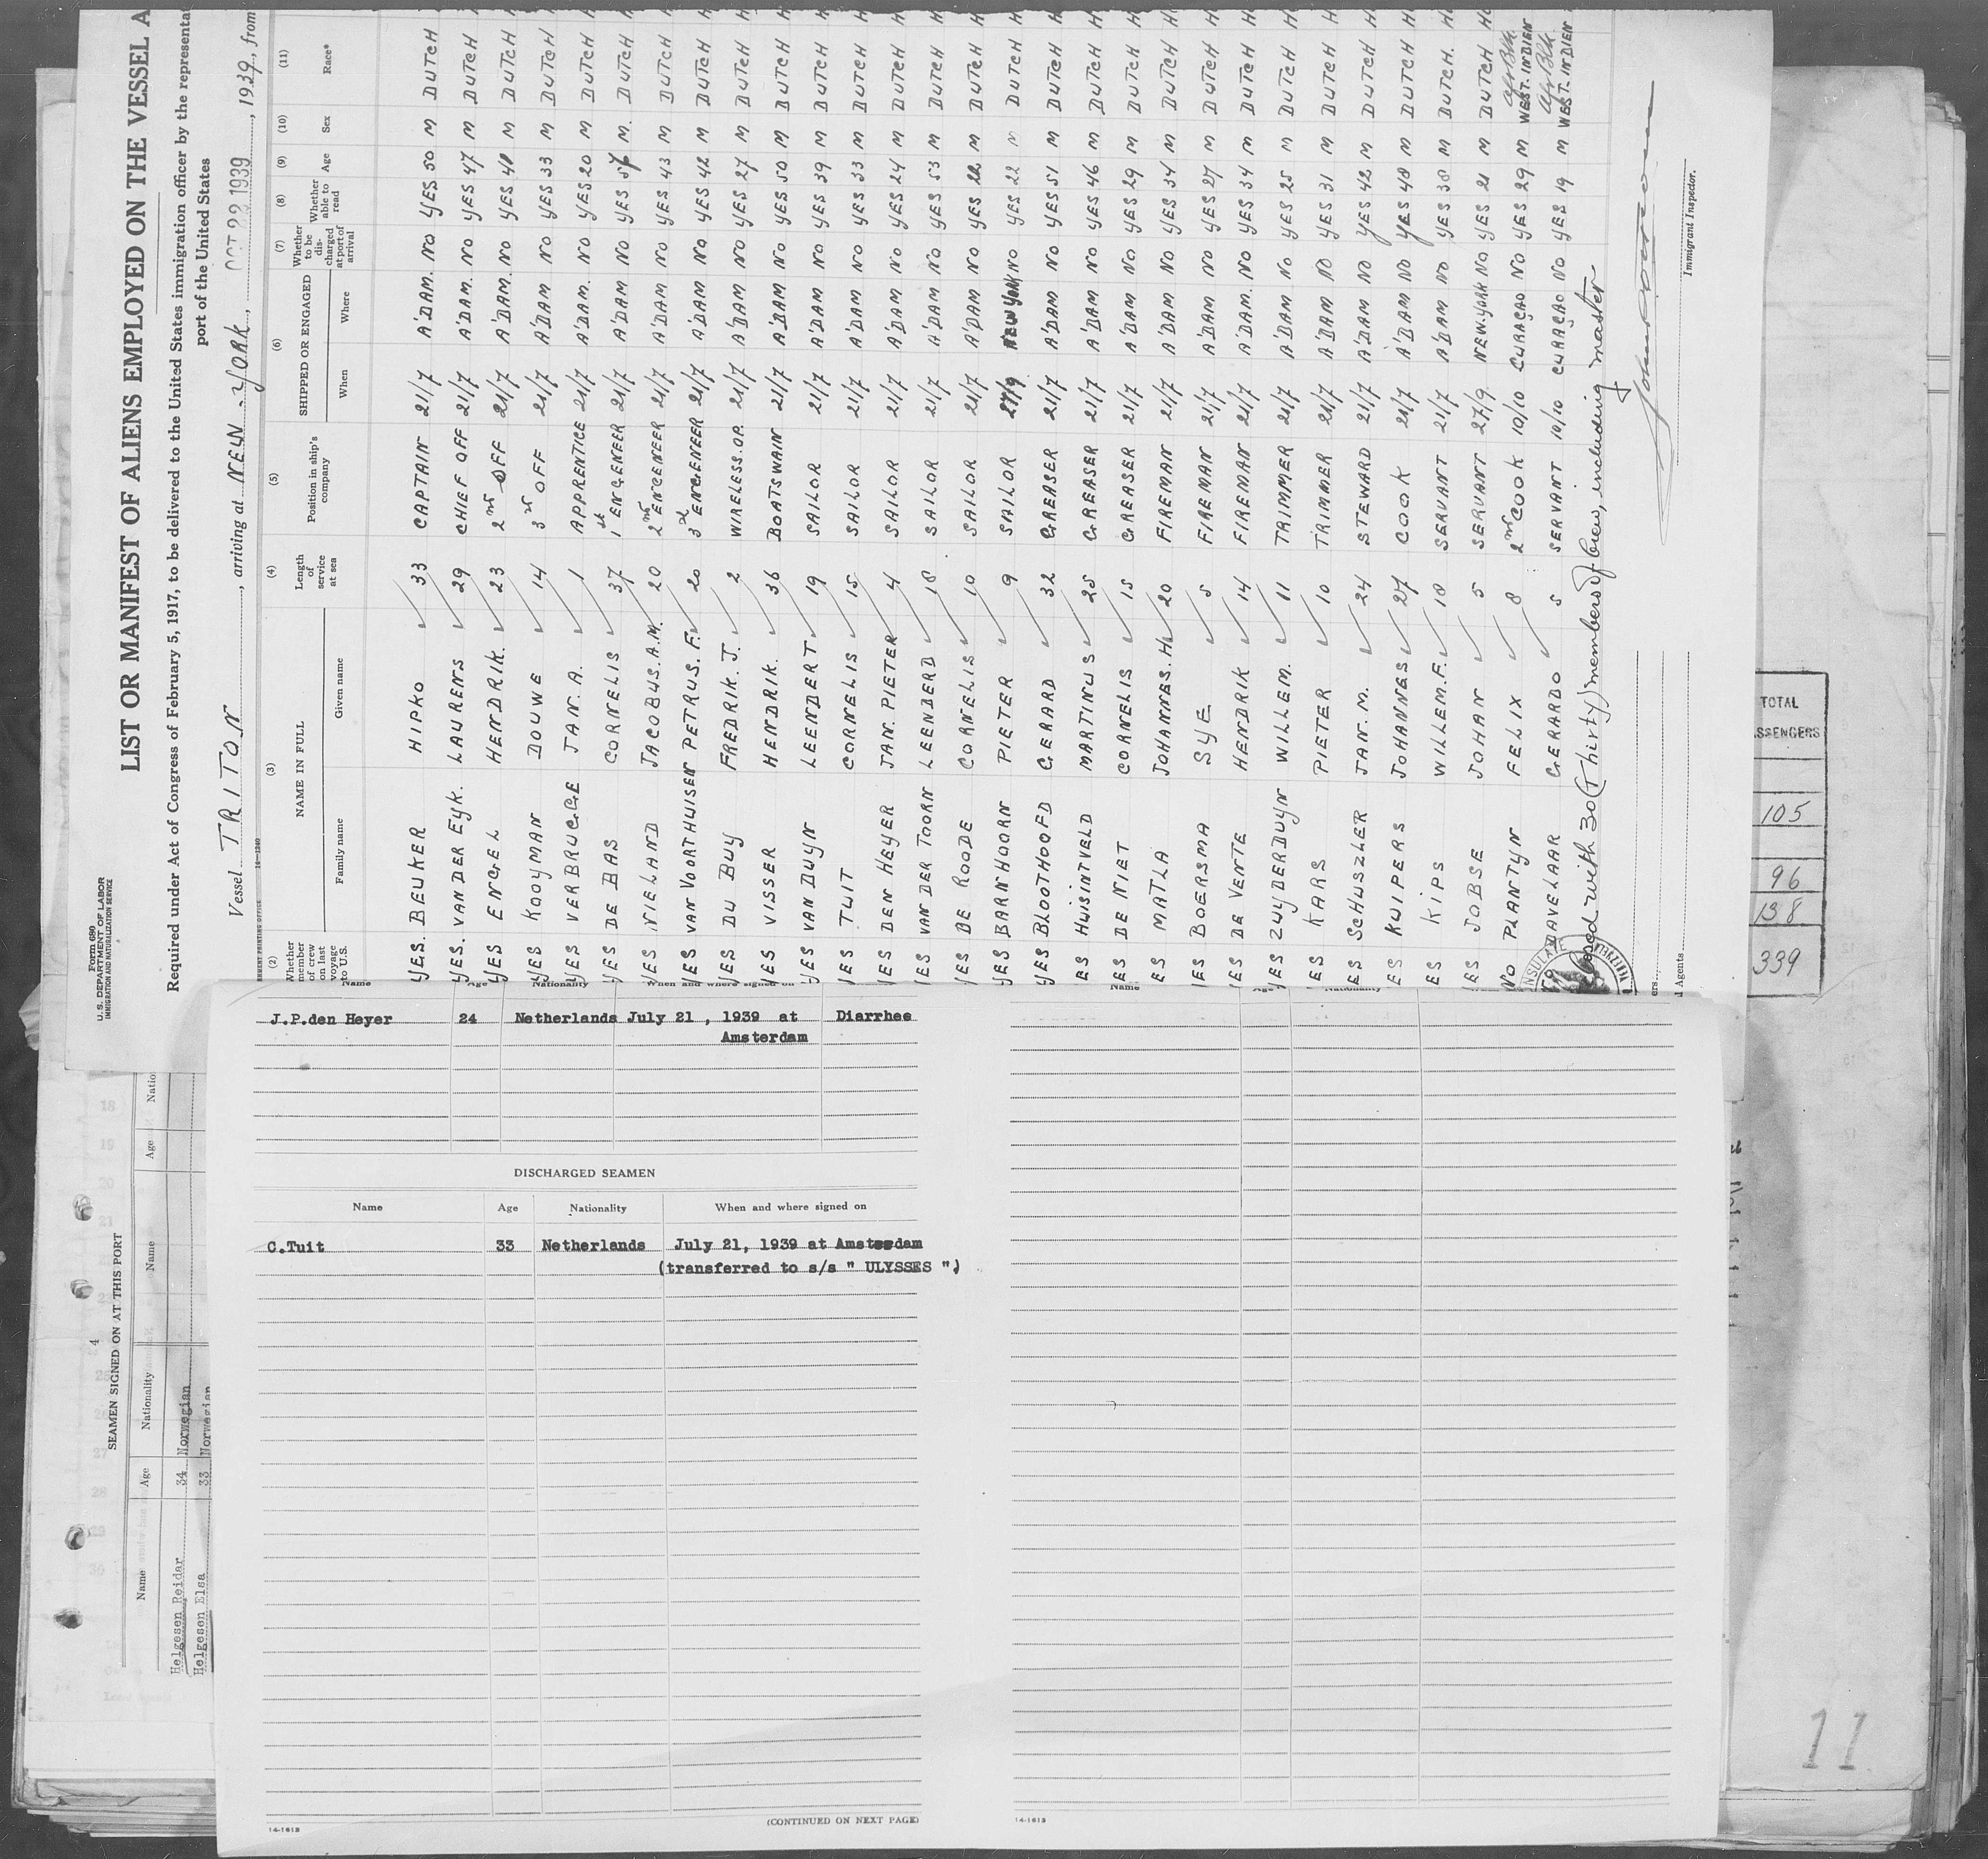 Form 680
U. S. DEPARTMENT OF LABOR
IMMIGRATION AND NATURALIZATION SERVICE
LIST OR MANIFEST OF ALIENS EMPLOYED ON THE VESSEL A
Required under Act of Congress of February 5, 1917, to be delivered to the United States immigration officer by the representa
port of the United States
Vessel TRITON, arriving at NEW-YORK, OCT 22 1939, 1939, from
(2) (3) (4) (5) (6) (7) (8) (9) (10) (11)
Whether member of crew on last voyage to U.S.
NAME IN FULL
Family name Given name
Length of service at sea
Position in ship's company
SHIPPED OR ENGAGED
When Where
Whether to be discharged at port of arrival
Whether able to read
Age Sex Race*
YES. BEUKER HIPKO 33 CAPTAIN 21/7 A'DAM. NO YES 50 M DUTCH
YES. VAN DER EYK. LAURENS 29 CHIEF OFF 21/7 A'DAM. NO YES 47 M DUTCH
YES ENGEL HENDRIK. 23 2nd OFF 21/7 A'DAM. NO YES 40 M DUTCH
YES KOOYMAN DOUWE 14 3rd OFF 21/7 A'DAM NO YES 33 M DUTCH
YES VERBRUGGE JAN. A. 1 APPRENTICE 21/7 A'DAM. NO YES 20 M DUTCH
YES DE BAS CORNELIS 37 1st ENGENEER 21/7 A'DAM NO YES M. DUTCH
YES NIELAND JACOBUS. A.M. 20 2nd ENGENEER 21/7 A'DAM NO YES 43 M DUTCH
YES VAN VORTHUISEN PETRUS. F. 20 3 ENGENEER 21/7 A'DAM NO YES 42 M DUTCH
YES DU BUY FREDRIK. J. 2 WIRELESS. OP. 21/7 A'DAM NO YES 27 M DUTCH
YES VISSER HENDRIK. 36 BOATSWAIN 21/7 A'DAM NO YES 50 M DUTCH
YES VAN DUYN LEENDERT 19 SAILOR 21/7 A'DAM NO YES 39 M DUTCH
YES TUIT CORNELIS 15 SAILOR 21/7 A'DAM NO YES 33 M DUTCH
YES DEN HEYER JAN. PIETER 4 SAILOR 21/7 A'DAM NO YES 24 M DUTCH
YES VAN DER TOORN LEENDERD 18 SAILOR 21/7 A'DAM NO YES 53 M DUTCH
YES DE ROODE CORNELIS 10 SAILOR 21/7 A'DAM NO YES 22 M DUTCH
YES BARNHOORN PIETER 9 SAILOR 27/9 NEW YORK NO YES 22 M DUTCH
YES BLOOTHOOFD GERARD 32 GREASER 21/7 A'DAM NO YES 51 M DUTCH
ES HUISINTVELD MARTINUS 25 GREASER 21/7 A'DAM NO YES 46 M DUTCH
ES DE NIET CORNELIS 15 GREASER 21/7 A'DAM NO YES 29 M DUTCH
ES MATLA JOHANNES. H. 20 FIREMAN 21/7 A'DAM NO YES 34 M DUTCH
ES BOERSMA SYE 5 FIREMAN 21/7 A'DAM NO YES 27 M DUTCH
ES DE VENTE HENDRIK 14 FIREMAN 21/7 A'DAM. NO YES 34 M DUTCH
YES ZUYDERDUYN WILLEM. 11 TRIMMER 21/7 A'DAM NO YES 25 M DUTCH
ES KARS PETER 10 TRIMMER 21/7 A'DAM NO YES 31 M DUTCH
ES SCHUSZLER JAN. M. 24 STEWARD 21/7 A'DAM NO YES 42 M DUTCH
ES KUIPERS JOHANNES 27 COOK 21/7 A'DAM NO YES 48 M DUTCH
ES KIPS WILLEM. F. 18 SERVANT 21/7 A'DAM NO YES 38 M DUTCH.
ES JOBSE JOHAN 5 SERVANT 27/9 NEW. YORK NO YES 21 M DUTCH
NO PLANTYN FELIX 8 2nd COOK 10/10 CURAÇAO NO YES 29 M Afr Blk. WEST. INDIEN
DAVELAAR GERARDO 5 SERVANT 10/10 CURAÇAO NO YES 19 M Afr Blk. WEST. INDIEN
Closed with 30 (Thirty) members of crew, including master
Immigrant Inspector.
Agents
TOTAL
SSENGERS
105
96
138
339
Name Age Nationality When and where signed on
J.P.den Heyer 24 Netherlands July 21 , 1939 at Diarrhee
Amsterdam
DISCHARGED SEAMEN
Name Age Nationality When and where signed on
C.Tuit 33 Netherlands July 21, 1939 at Amsterdam
(transferred to s/s " ULYSSES ")
(CONTINUED ON NEXT PAGE)
14-1613
14-1613
Name Age Nationality
4
SEAMEN SIGNED ON AT THIS PORT
Name Age Nationality Name Age Natio
Helgesen Reidar 34 Norwegian
Helgesen Elsa 33 Norwegian
18
19
20
21
28
29
30
11